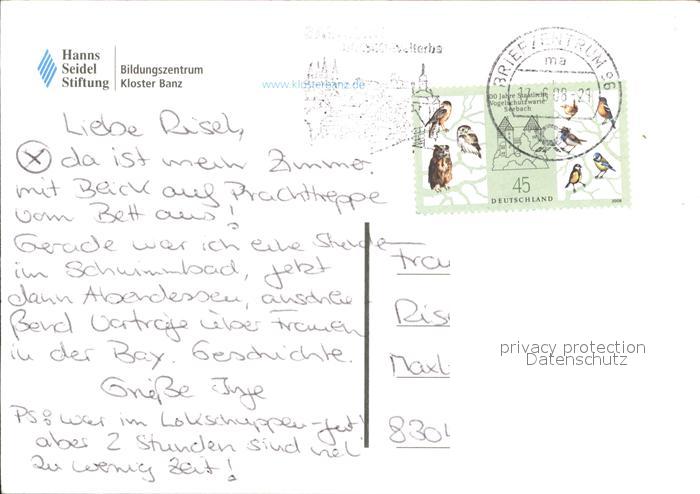 Hanns
Seidel
Stiftung
Bildungszentrum
Kloster Banz
www.klosterbanz.de
BRIEFZENTRUM 96
ma
100 Jahre Staatliche
Vogelschutzwarte
Seebach
45
DEUTSCHLAND
2008
Liebe Risel,
da ist mein Zimmer
mit Blick auf Prachttreppe
vom Bett aus!
Gerade war ich eine Stunde
im Schwimmbad, jetzt
dann Abendessen, anschlie
ßend Vorträge über Frauen
in der Bay. Geschichte.
Grüße Inge
PS: war im Lokschuppen - gut
aber 2 Stunden sind viel
zu wenig Zeit!
Frau
Ris
Maxl
830
privacy protection
Datenschutz